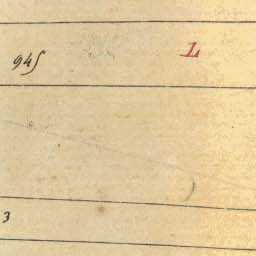 945 L
3